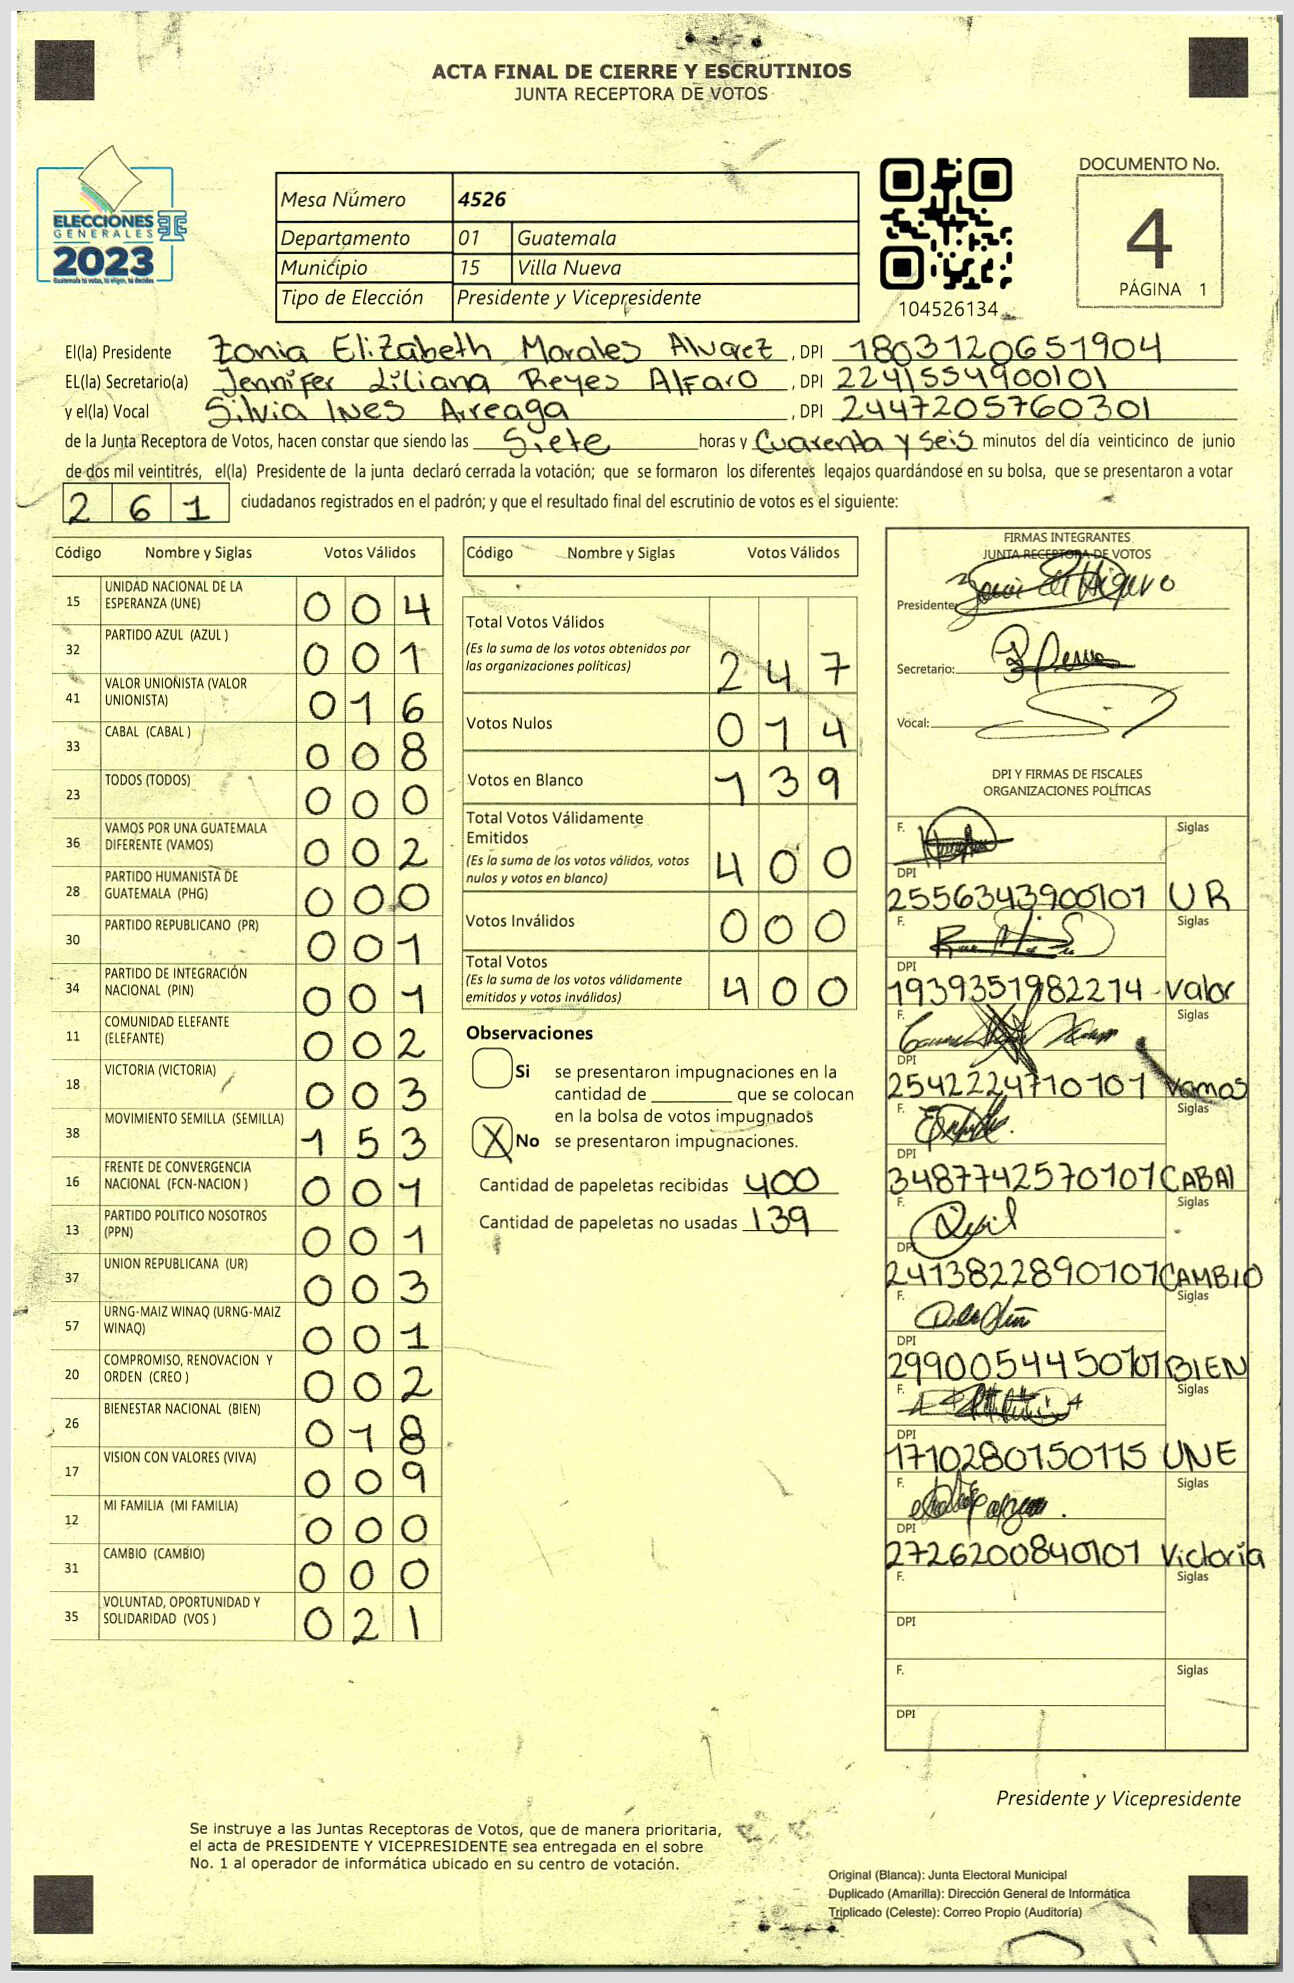 ACTA FINAL DE CIERRE Y ESCRUTINIOS
JUNTA RECEPTORA DE VOTOS
ELECCIONES
GENERALES
2023
Mesa Número 4526
Departamento 01 Guatemala
Municipio 15 Villa Nueva
Tipo de Elección Presidente y Vicepresidente
104526134
DOCUMENTO No.
4
PÁGINA 1
El(la) Presidente Zonia Elizabeth Morales Alvarez , DPI 1803120651904
EL(la) Secretario(a) Jennifer Liliana Reyes Alfaro , DPI 2241554900101
y el(la) Vocal Silvia Ines Arreaga , DPI 2447205760301
de la Junta Receptora de Votos, hacen constar que siendo las Siete horas y Cuarenta y seis minutos del día veinticinco de junio
de dos mil veintitrés, el(la) Presidente de la junta declaró cerrada la votación; que se formaron los diferentes legajos guardándose en su bolsa, que se presentaron a votar
261 ciudadanos registrados en el padrón; y que el resultado final del escrutinio de votos es el siguiente:
Código Nombre y Siglas Votos Válidos
15 UNIDAD NACIONAL DE LA ESPERANZA (UNE) 004
32 PARTIDO AZUL (AZUL ) 001
41 VALOR UNIONISTA (VALOR UNIONISTA) 016
33 CABAL (CABAL ) 008
23 TODOS (TODOS) 000
36 VAMOS POR UNA GUATEMALA DIFERENTE (VAMOS) 002
28 PARTIDO HUMANISTA DE GUATEMALA (PHG) 000
30 PARTIDO REPUBLICANO (PR) 001
34 PARTIDO DE INTEGRACIÓN NACIONAL (PIN) 001
11 COMUNIDAD ELEFANTE (ELEFANTE) 002
18 VICTORIA (VICTORIA) 003
38 MOVIMIENTO SEMILLA (SEMILLA) 153
16 FRENTE DE CONVERGENCIA NACIONAL (FCN-NACION ) 001
13 PARTIDO POLITICO NOSOTROS (PPN) 001
37 UNION REPUBLICANA (UR) 003
57 URNG-MAIZ WINAQ (URNG-MAIZ WINAQ) 001
20 COMPROMISO, RENOVACION Y ORDEN (CREO ) 002
26 BIENESTAR NACIONAL (BIEN) 018
17 VISION CON VALORES (VIVA) 009
12 MI FAMILIA (MI FAMILIA) 000
31 CAMBIO (CAMBIO) 000
35 VOLUNTAD, OPORTUNIDAD Y SOLIDARIDAD (VOS ) 021
Código Nombre y Siglas Votos Válidos
Total Votos Válidos
(Es la suma de los votos obtenidos por
las organizaciones políticas) 247
Votos Nulos 014
Votos en Blanco 139
Total Votos Válidamente
Emitidos
(Es la suma de los votos válidos, votos
nulos y votos en blanco) 400
Votos Inválidos 000
Total Votos
(Es la suma de los votos válidamente
emitidos y votos inválidos) 400
Observaciones
Si se presentaron impugnaciones en la
cantidad de ________ que se colocan
en la bolsa de votos impugnados
X No se presentaron impugnaciones.
Cantidad de papeletas recibidas 400
Cantidad de papeletas no usadas 139
FIRMAS INTEGRANTES
JUNTA RECEPTORA DE VOTOS
Presidente:
Secretario:
Vocal:
DPI Y FIRMAS DE FISCALES
ORGANIZACIONES POLÍTICAS
F. Siglas
DPI
2556343900101 UR
F. Siglas
DPI
1939351982214 Valor
F. Siglas
DPI
2542224710101 Vamos
F. Siglas
DPI
3487742570101 CABAl
F. Siglas
DPI
2413822890101 CAMBIO
F. Siglas
DPI
2990054450101 BIEN
F. Siglas
DPI
1710280150115 UNE
F. Siglas
DPI
2726200840101 Victoria
F. Siglas
DPI
F. Siglas
DPI
Presidente y Vicepresidente
Se instruye a las Juntas Receptoras de Votos, que de manera prioritaria,
el acta de PRESIDENTE Y VICEPRESIDENTE sea entregada en el sobre
No. 1 al operador de informática ubicado en su centro de votación.
Original (Blanca): Junta Electoral Municipal
Duplicado (Amarilla): Dirección General de Informática
Triplicado (Celeste): Correo Propio (Auditoría)